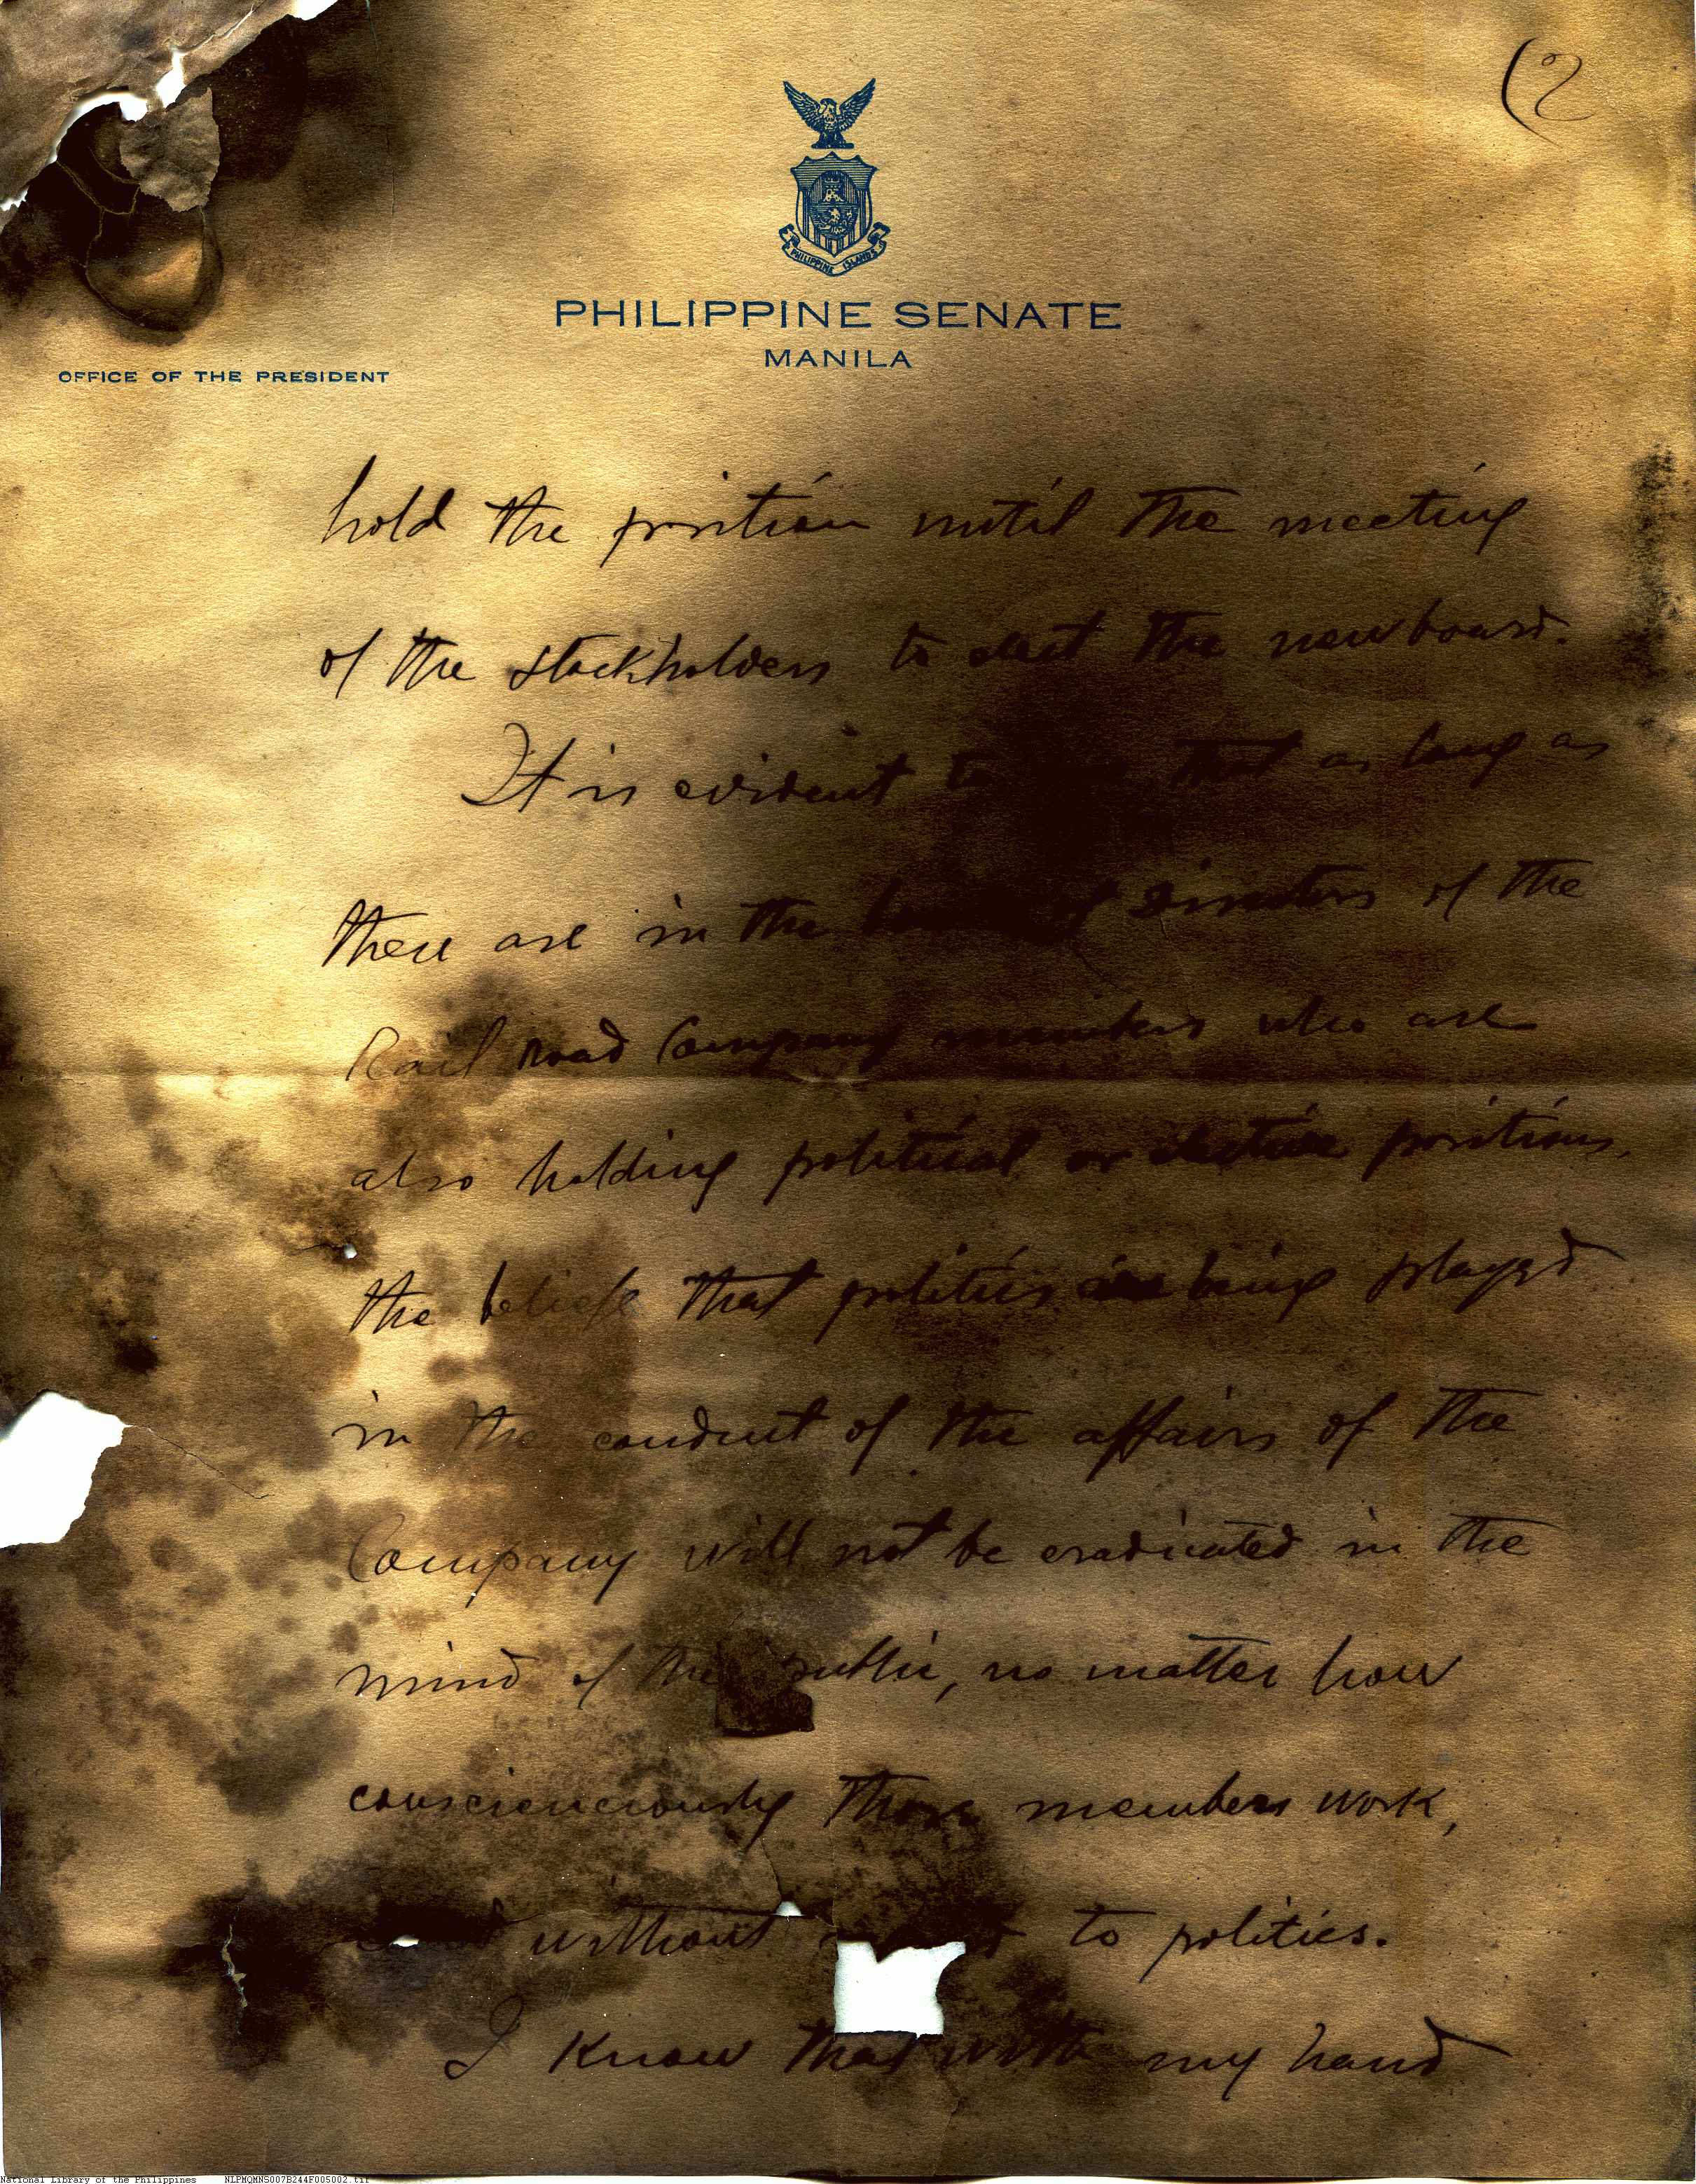 (2
PHILIPPINE ISLANDS
PHILIPPINE SENATE
MANILA
OFFICE OF THE PRESIDENT
hold the position until the meeting
of the stockholders to elect the new board.
It is evident to that as long as
there are in the board of directors of the
Rail road Company members who are
also holding political or elective positions,
the beliefe that politics is being played
in the conduct of the affairs of the
Company will not be eradicated in the
mind of the public, no matter how
conscienciously those members work,
without to politics.
I know that with my hand
National Library of the Philippines NLPMQMNS007B244F005002.tif